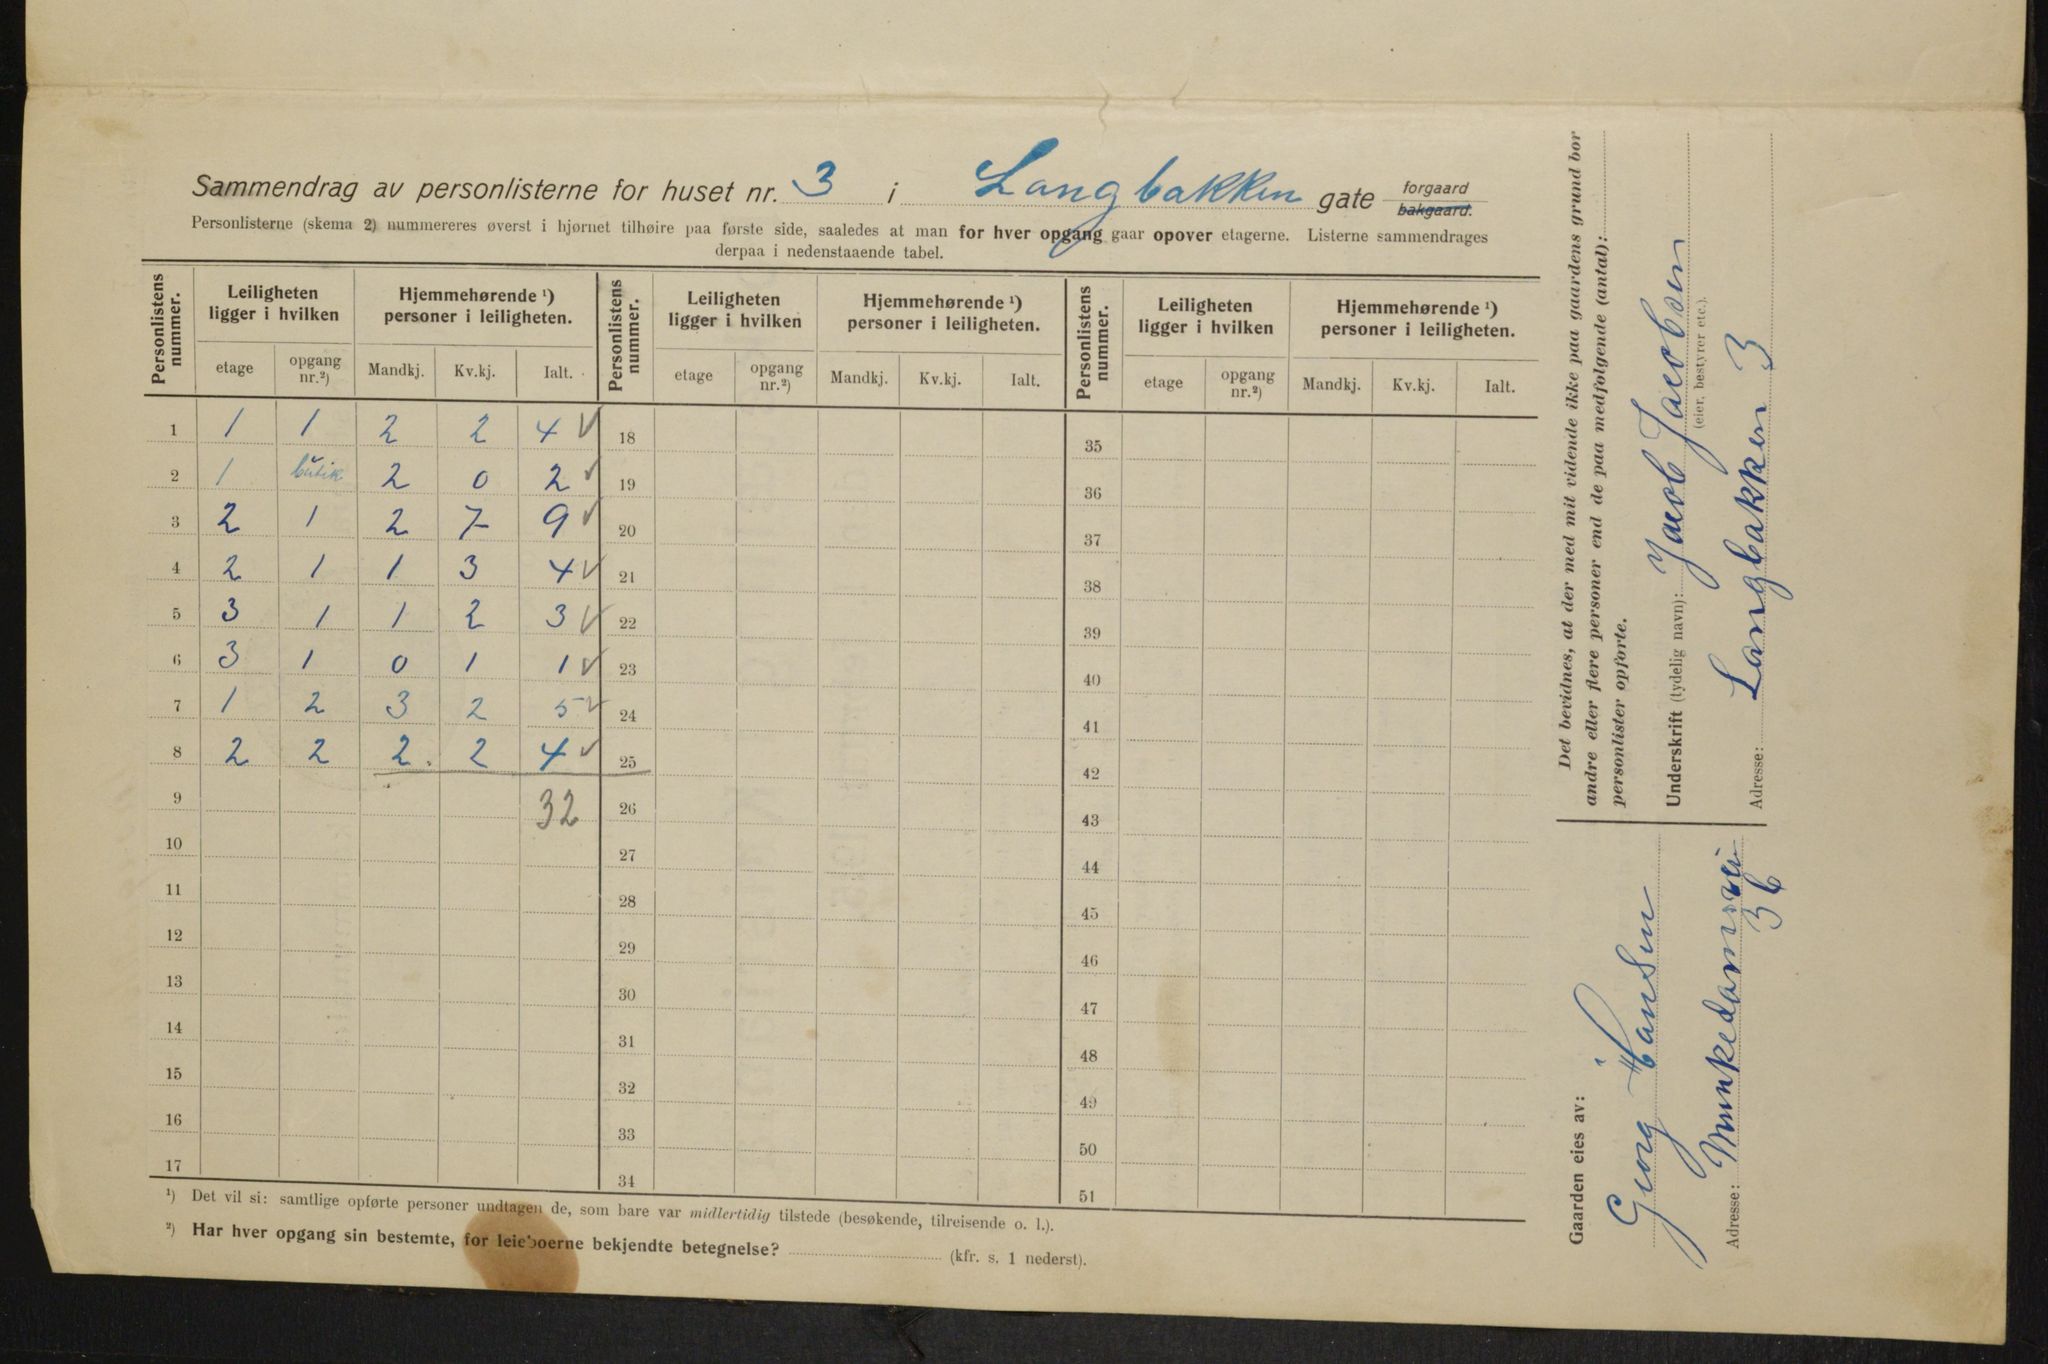 Sammendrag av personlisterne for huset nr. 3 i Langbakken gate forgaard bakgaard.
Personlisterne (skema 2) nummereres øverst i hjørnet tilhøire paa første side, saaledes at man for hver opgang gaar opover etagerne. Listerne sammendrages
derpaa i nedenstaaende tabel.
Personlistens nummer. Leiligheten ligger i hvilken Hjemmehørende ¹) personer i leiligheten. Personlistens nummer. Leiligheten ligger i hvilken Hjemmehørende ¹) personer i leiligheten. Personlistens nummer. Leiligheten ligger i hvilken Hjemmehørende ¹) personer i leiligheten.
etage opgang nr.²) Mandkj. Kv.kj. Ialt. etage opgang nr.²) Mandkj. Kv.kj. Ialt. etage opgang nr.²) Mandkj. Kv.kj. Ialt.
1 1 1 2 2 4 ✓ 18 35
2 1 butik 2 0 2 ✓ 19 36
3 2 1 2 7 9 ✓ 20 37
4 2 1 1 3 4 ✓ 21 38
5 3 1 1 2 3 ✓ 22 39
6 3 1 0 1 1 ✓ 23 40
7 1 2 3 2 5 ✓ 24 41
8 2 2 2 2 4 ✓ 25 42
9 32 26 43
10 27 44
11 28 45
12 29 46
13 30 47
14 31 48
15 32 49
16 33 50
17 34 51
¹) Det vil si: samtlige opførte personer undtagen de, som bare var midlertidig tilstede (besøkende, tilreisende o. l.).
²) Har hver opgang sin bestemte, for leieboerne bekjendte betegnelse? (kfr. s. 1 nederst).
Det bevidnes, at der med mit vidende ikke paa gaardens grund bor
andre eller flere personer end de paa medfølgende (antal):
personlister opførte.
Underskrift (tydelig navn): Jacob Jacobsen
(eier, bestyrer etc.).
Adresse: Langbakken 3
Gaarden eies av:
Georg Hansen
Adresse: Munkedamsvei
36